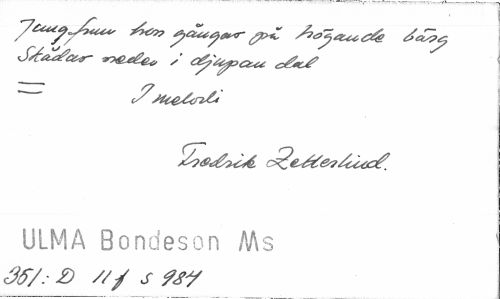 Jungfrun hon gångar på högande bärg
Skådar neder i djupan dal
=
I melodi
Fredrik Zetterlind.
ULMA Bondeson Ms
351:D 11 f s 984